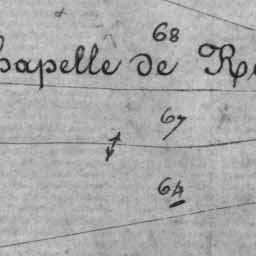 68
hapelle de R
67
64